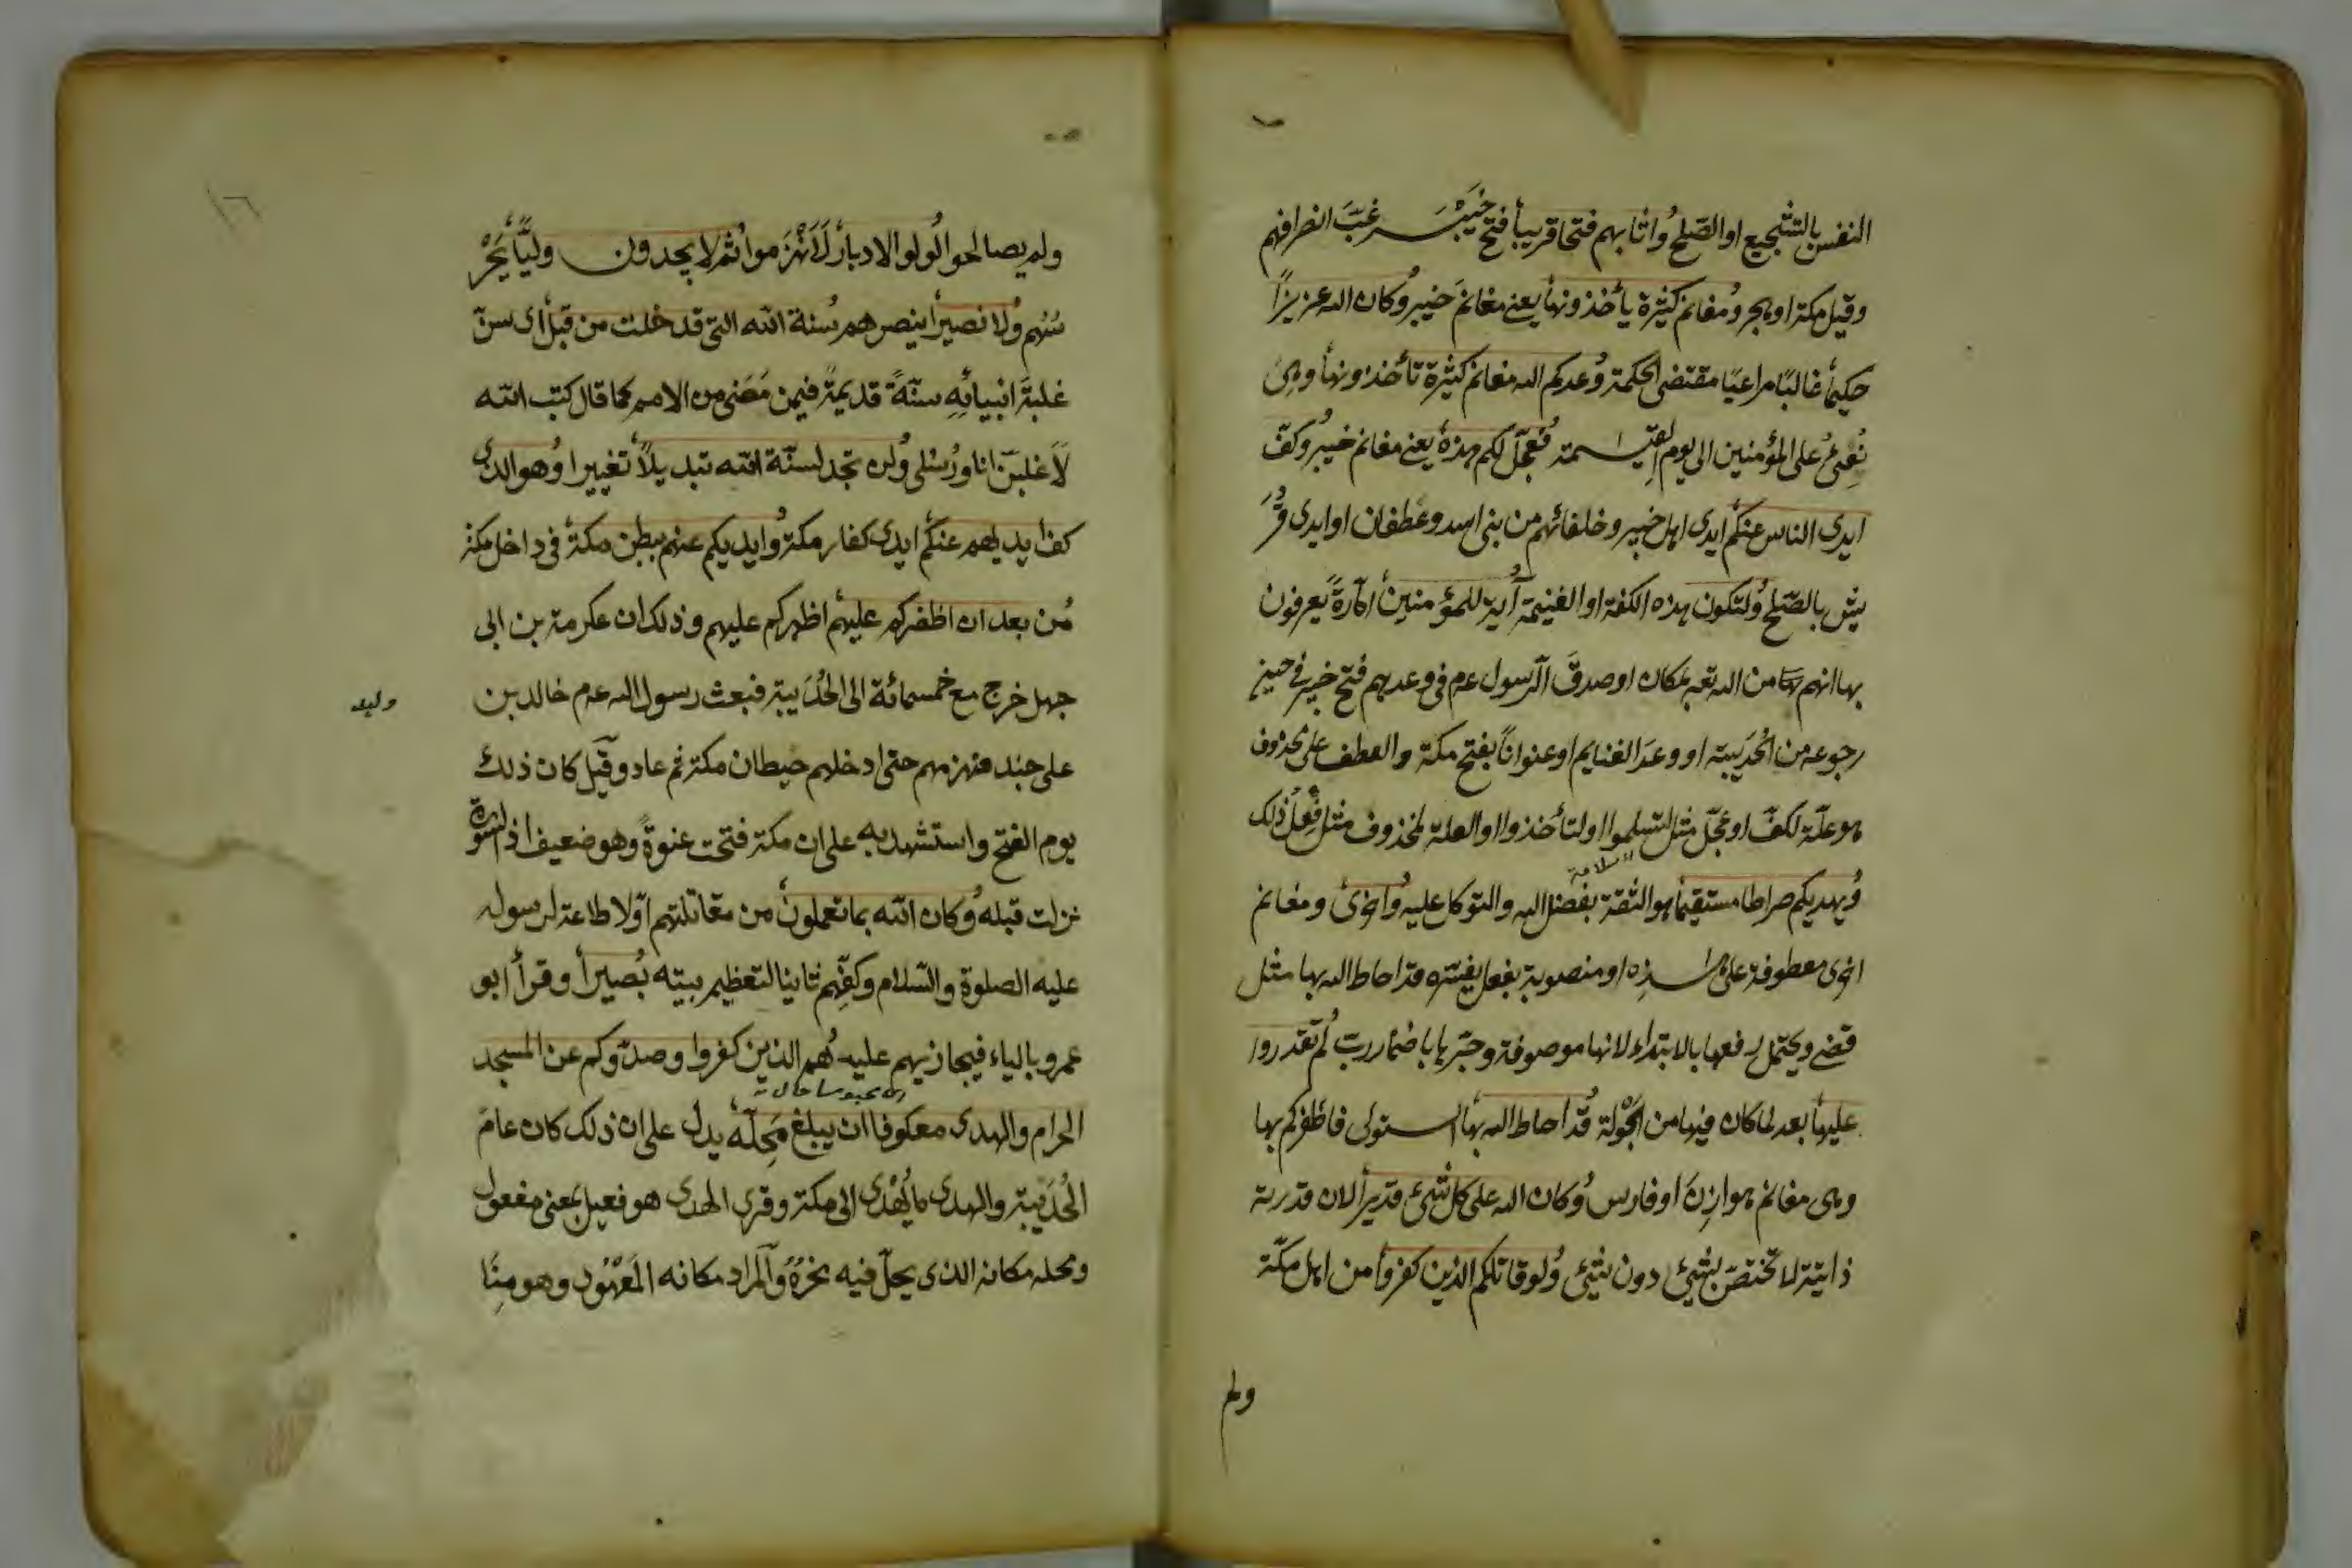 النفس بالتشجيع او الصّلح وُاثابهم فتحا قريباً فتح خَيْبَر غبَّ انصرافهم
وقيل مكة او هجر وُمغانم كثيرة يأخذونها يعنى مغانمَ خيبر وُكان الله عزيزًا
حكيماً غالبًا مراعيًا مقتضى الحكمة وُعدكم الله مغانم كثيرة تأخذونها وهى
يُفئُ على المؤمنين الى يوم القيمة فُعجّل لكم هذه يعنى مغانم خيبر وُكفّ
ايدى الناس عنكم ايدى اهل خيبر وخلفائهم من بنى اسد وغطفان او ايدى قُرَ
يش بالصّلح وُلتكون هذه الكفة او الغنيمة آية للمؤمنين امارةً يعرفون
بها انهم من الله تع بمكان او صدقَ الرسول عم فى وعدهم فتح خيبر فى حين
رجوعه من الحُدَيبية او وعدَ الغنايم او عنوانًا بفتح مكة والعطف على محذوف
هو علّة لكفّ او عجّل مثل لتسلموا او لتأخذوا او العلة لمحذوف مثل فعل ذلك
وُيهديكم صراطا مستقيماً هو الثقة بفضل الله والتوكل عليه وُاخرى ومغانم
اخرى معطوفة على هذه او منصوبة بفعل يفسّره قد احاط الله بها مثل
قضى ويحتمل رفعها بالابتداء لانها موصوفة وجرّها باضمار ربّ لُم تقدروا
عليها بعد لما كان فيها من الجَوْلة قُد احاط الله بها استولى فاظفركم بها
وهى مغانم هوازِنَ او فارس وُكان الله على كل شئ قديراً لان قدرته
ذاتيّة لا تختصّ بشئ دون شئ وُلو قاتلكم الذين كفروا من اهل مكّة
ولم
١٦
ولم يصالحوا لُولوا الادبار لَانْهَزَموا ثُم لا يجدون وليًّا يَحْر
سُهم وُلا نصيراً ينصرهم سُنة الله التى قد خلت من قبل اى سنّ
غلبةَ انبيائِهِ سنّةً قديمةً فيمن مَضَى من الامم كما قال كتب الله
لَاَغلبنّ انا ورُسُلى وُلن تجد لسنّة الله تبديلاً تغييرا وُهو الذى
كف ايديهم عنكم ايدى كفار مكة وُايديكم عنهم ببطن مكة فى داخل مكة
مُن بعد ان اظفركم عليهم اظهركم عليهم وذلك ان عكرمة بن ابى
جهل خرج مع خمسمائة الى الحُدَيبية فبعث رسول الله عم خالد بن
وليد
على جند فهزمهم حتى ادخلهم حيطان مكة ثم عاد وقيل كان ذلك
يوم الفتح واستشهد به على ان مكة فتحت عنوةً وهو ضعيف اذ السّورة
نزلت قبله وُكان الله بما تعملون من مقاتلتهم اوّلا طاعة لرسوله
عليه الصلوة والسّلام وكفِّهم ثانيا لتعظيم بيته بُصيراً وقرأ ابو
عمرو بالياء فيجازيهم عليه هُم الذين كفروا وصدّوكم عن المسجد
الحرام والهدى معكوفا ان يبلغ مَحِلّه يدل على ان ذلك كان عامَ
الحُدَيبية والهدى ما يُهْدَى الى مكة وقرئ الهدى هو فعيل بمعنى مفعول
ومحله مكانه الذى يحلّ فيه نحرُهُ والمراد مكانه المَعْهُود وهو مِنًا